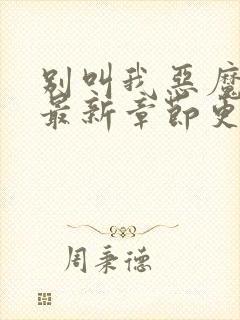 别叫我恶魔
最新章节更
周秉德